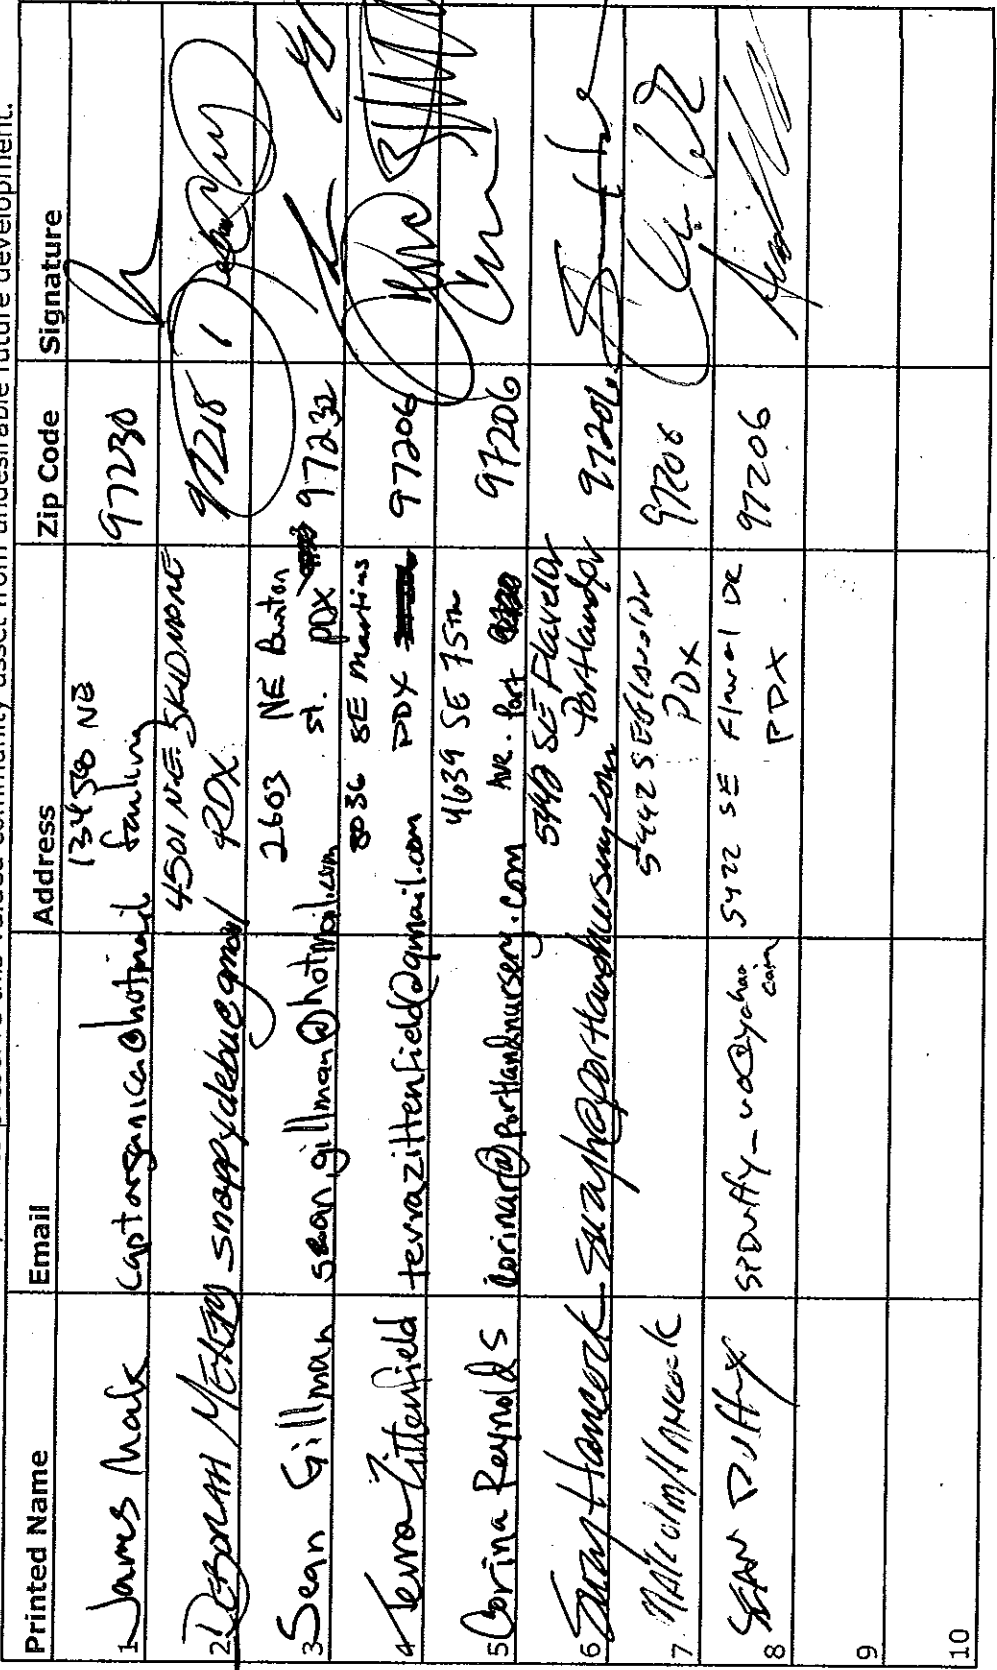 to preserve this valued community asset from undesirable future development.
Printed Name Email Address Zip Code Signature
1 James captorganica@hotmail 13450 NE 97230
2 DEBORAH snappydebu@gmail 4501 N.E. SKIDMORE PDX 97218
3 Sean Gillman sean.gillman@hotmail.com 2603 NE Burton st. PDX 97232
4 Terra Zittenfield terrazittenfield@gmail.com 8036 SE Martins PDX 97206
5 Corina Reynolds corinar@portlandnursery.com 4639 SE 75th Ave. Port 97206
6 Hancock 5442 SE Flavel Dr Portland or 97206
7 Malcolm Hancock 5442 SE Flavel Dr PDX 97206
8 SEAN DUFFY 5422 SE Flavel DR PDX 97206
9
10